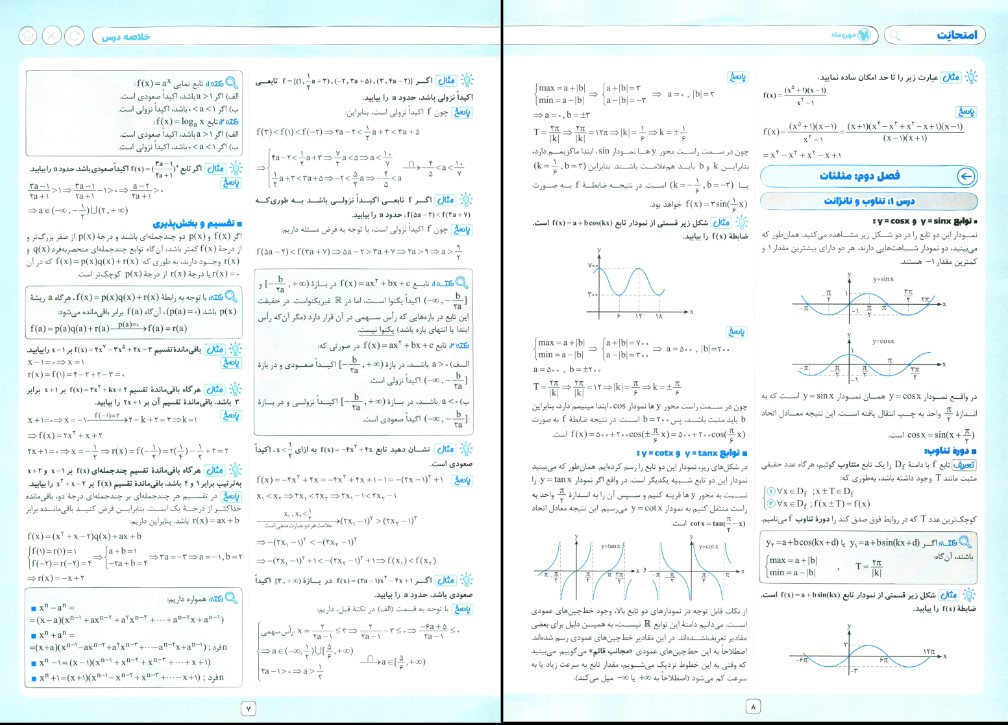 امتحانِت
مهروماه
مثال عبارت زیر را تا حد امکان ساده نمایید:
f(x)=(x⁵+1)(x-1)/x²-1
پاسخ
f(x)=(x⁵+1)(x-1)/x²-1=(x+1)(x⁴-x³+x²-x+1)(x-1)/(x-1)(x+1)
=x⁴-x³+x²-x+1
فصل دوم: مثلثات
درس ۱: تناوب و تانژانت
■ توابع y=sinx و y=cosx:
نمودار این دو تابع را در دو شکل زیر مشاهده می‌کنید. همان‌طور که
می‌بینید، دو نمودار شباهت‌هایی دارند. هر دو دارای بیشترین مقدار ۱ و
کمترین مقدار ۱- هستند.
y=sinx
y=cosx
در واقع نمودار y=cosx همان نمودار y=sinx است که به
اندازهٔ π/۲ واحد به چپ انتقال یافته است. این نتیجه معادل اتحاد
cosx=sin(x+π/۲) است.
■ دورهٔ تناوب:
تعریف تابع f با دامنهٔ D_f را یک تابع متناوب گوئیم، هرگاه عدد حقیقی
مثبت مانند T وجود داشته باشد، به‌طوری که:
۱) ∀x∈D_f ; x±T∈D_f
۲) ∀x∈D_f ; f(x±T)=f(x)
کوچک‌ترین عدد T که در روابط فوق صدق کند را دورهٔ تناوب f می‌نامیم.
نکته: اگر y₁=a+bsin(kx+d) یا y₂=a+bcos(kx+d)
باشند، آن‌گاه:
max=a+|b|
min=a-|b| , T=۲π/|k|
مثال شکل زیر قسمتی از نمودار تابع f(x)=a+bsin(kx) است.
ضابطهٔ f(x) را بیابید.
پاسخ
max=a+|b| ⇒ a+|b|=۳
min=a-|b| a-|b|=-۳ ⇒a=۰ , |b|=۳
⇒a=۰ , b=±۳
T=۲π/|k| ⇒ ۲π/|k|=۱۲π⇒|k|=۱/۶⇒k=±۱/۶
چون در سمت راست محور y ها نمودار sin، ابتدا ماکزیمم دارد،
بنابراین k و b باید هم‌علامت باشند. بنابراین (k=۱/۶ , b=۳)
یا (k=-۱/۶ , b=-۳) است. در نتیجه ضابطهٔ f به صورت
f(x)=۳sin(۱/۶x) خواهد بود.
مثال شکل زیر قسمتی از نمودار تابع f(x)=a+bcos(kx) است.
ضابطهٔ f(x) را بیابید.
۷۰۰
۳۰۰
۶ ۱۲ ۱۸
پاسخ
max=a+|b| ⇒ a+|b|=۷۰۰
min=a-|b| a-|b|=۳۰۰ ⇒a=۵۰۰ , |b|=۲۰۰
a=۵۰۰ , b=±۲۰۰
T=۲π/|k| ⇒ ۲π/|k|=۱۲⇒|k|=π/۶⇒k=±π/۶
چون در سمت راست محور y ها نمودار cos، ابتدا مینیمم دارد، بنابراین
b باید مثبت باشد، پس b=۲۰۰ است. در نتیجه ضابطهٔ f به صورت
f(x)=۵۰۰+۲۰۰cos(±π/۶x)=۵۰۰+۲۰۰cos(π/۶x) است.
■ توابع y=tanx و y=cotx :
در شکل‌های زیر، نمودار این دو تابع را رسم کرده‌ایم. همان‌طور که می‌بینید
نمودار این دو تابع شبیه یکدیگر است. در واقع اگر نمودار y=tanx را
نسبت به محور yها قرینه کنیم و سپس آن را به اندازهٔ π/۲ واحد به
راست منتقل کنیم به نمودار y=cotx می‌رسیم. این نتیجه معادل اتحاد
cotx=tan(π/۲-x) است.
y=tanx
y=cotx
از نکات قابل توجه در نمودارهای دو تابع بالا، وجود خط‌چین‌های عمودی
است. می‌دانیم دامنهٔ این توابع ℝ نیست، به همین دلیل برای بعضی
مقادیر تعریف‌نشده‌اند. در این مقادیر خط‌چین‌های عمودی رسم شده‌اند.
اصطلاحاً به این خط‌چین‌های عمودی «مجانب قائم» می‌گوییم. می‌بینید
که وقتی به این خطوط نزدیک می‌شویم، مقدار تابع به سرعت زیاد یا به
سرعت کم می‌شود (اصطلاحاً به ∞+ یا ∞- میل می‌کند).
۸
خلاصه درس
مثال اگر f={(۱,۱/۲a+۳),(-۲,۳a+۵),(۳,۴a-۲)} تابعی
اکیداً نزولی باشد، حدود a را بیابید.
پاسخ چون f اکیداً نزولی است، بنابراین:
f(۳)<f(۱)<f(-۲)⇒۴a-۲<۱/۲a+۳<۳a+۵
مثال اگر f تابعی اکیداً نزولی باشد به طوری‌که
f(۵a-۲)<f(۳a+۷)، حدود a را بیابید.
پاسخ چون f اکیداً نزولی است، با توجه به فرض مسئله داریم:
f(۵a-۲)<f(۳a+۷)⇒۵a-۲>۳a+۷⇒۲a>۹⇒a>۹/۲
نکته ۱: تابع f(x)=ax²+bx+c در بازهٔ (-b/۲a,+∞] و
(-∞,-b/۲a) اکیداً یکنوا است، اما در ℝ غیریکنواست. در حقیقت
این تابع در بازه‌هایی که رأس سهمی در آن قرار دارد (مگر آن‌که رأس
ابتدا یا انتهای بازه باشد) یکنوا نیست.
نکته ۲: تابع f(x)=ax²+bx+c در صورتی که:
الف) a>۰ باشد، در بازهٔ (-b/۲a,+∞] اکیداً صعودی و در بازهٔ
(-∞,-b/۲a) اکیداً نزولی است.
ب) a<۰ باشد، در بازهٔ (-b/۲a,+∞] اکیداً نزولی و در بازهٔ
(-∞,-b/۲a) اکیداً صعودی است
مثال نشان دهید تابع f(x)=-۴x²+۴x به ازای x<۱/۲، اکیداً
صعودی است.
پاسخ f(x)=-۴x²+۴x=-۴x²+۴x+۱-۱=-(۲x-۱)²+۱
x₁<x₂⇒۲x₁<۲x₂⇒۲x₁-۱<۲x₂-۱
علامت هر دو عبارت منفی است
⇒(۲x₁-۱)²>(۲x₂-۱)²
⇒-(۲x₁-۱)²<-(۲x₂-۱)²
⇒-(۲x₁-۱)²+۱<-(۲x₂-۱)²+۱⇒f(x₁)<f(x₂)
مثال اگر f(x)=(۲a-۱)x²-۴x+۱ در بازهٔ (۳,+∞] اکیداً
صعودی باشد، حدود a را بیابید.
پاسخ با توجه به قسمت (الف) در نکتهٔ قبل، داریم:
نکته ۱: تابع نمایی f(x)=aˣ:
الف) اگر a>۱ باشد، اکیداً صعودی است.
ب) اگر ۰<a<۱ باشد، اکیداً نزولی است.
نکته ۲: تابع f(x)=logₐx:
الف) اگر a>۱ باشد، اکیداً صعودی است.
ب) اگر ۰<a<۱ باشد، اکیداً نزولی است.
مثال اگر تابع f(x)=(۳a-۱/۲a+۱)ˣ اکیداً صعودی باشد حدود a را بیابید.
پاسخ
۳a-۱/۲a+۱>۱⇒۳a-۱/۲a+۱-۱>۰⇒a-۲/۲a+۱>۰
⇒a∈(-∞,-۱/۲)∪(۲,+∞)
■ تقسیم و بخش‌پذیری
اگر f(x) و p(x) دو چندجمله‌ای باشند و درجهٔ p(x) از صفر بزرگ‌تر و
از درجهٔ f(x) کمتر باشد، آن‌گاه توابع چندجمله‌ای منحصربه‌فرد q(x) و
r(x) وجود دارند، به طوری که f(x)=p(x)q(x)+r(x) که در آن
r(x)=۰ یا درجهٔ r(x) از درجهٔ p(x) کوچک‌تر است.
نکته: با توجه به رابطهٔ f(x)=p(x)q(x)+r(x)، هرگاه a ریشهٔ
p(x) باشد (p(a)=۰)، آن‌گاه f(a) برابر باقی‌مانده می‌شود:
f(a)=p(a)q(a)+r(a) p(a)=۰→ f(a)=r(a)
مثال باقی‌ماندهٔ تقسیم f(x)=۴x⁷-۳x⁵+۲x-۳ بر x-۱ را بیابید.
پاسخ x-۱=۰⇒x=۱
r(x)=f(۱)=۴-۳+۲-۳=۰
مثال هرگاه باقی‌ماندهٔ تقسیم f(x)=۲x²+kx+۲ بر x+۱ برابر
۳ باشد، باقی‌ماندهٔ تقسیم آن بر ۲x+۱ را بیابید.
پاسخ x+۱=۰⇒x=-۱ f(-۱)=۳→ ۲-k+۲=۳⇒k=۱
⇒f(x)=۲x²+x+۲
۲x+۱=۰⇒x=-۱/۲⇒r(x)=f(-۱/۲)=۲(۱/۴)-۱/۲+۲=۲
مثال هرگاه باقی‌ماندهٔ تقسیم چندجمله‌ای f(x) بر x-۱ و x+۲
به‌ترتیب برابر ۱ و ۴ باشد، باقی‌ماندهٔ تقسیم f(x) بر x²+x-۲ را بیابید.
پاسخ در تقسیم هر چندجمله‌ای بر چندجمله‌ای درجهٔ دو، باقی‌مانده
حداکثر از درجهٔ یک است. بنابراین فرض کنید باقی‌مانده برابر
r(x)=ax+b باشد. بنابراین داریم:
f(x)=(x²+x-۲)q(x)+ax+b
f(۱)=r(۱)=۱ ⇒ a+b=۱
f(-۲)=r(-۲)=۴ -۲a+b=۴ ⇒۳a=-۳⇒a=-۱,b=۲
⇒r(x)=-x+۲
نکته: همواره داریم:
■ xⁿ-aⁿ=
=(x-a)(xⁿ⁻¹+axⁿ⁻²+a²xⁿ⁻³+⋯+aⁿ⁻²x+aⁿ⁻¹)
■ xⁿ+aⁿ=
=(x+a)(xⁿ⁻¹-axⁿ⁻²+a²xⁿ⁻³-⋯-aⁿ⁻²x+aⁿ⁻¹) ; n فرد
■ xⁿ-۱=(x-۱)(xⁿ⁻¹+xⁿ⁻²+xⁿ⁻³+⋯+x+۱)
■ xⁿ+۱=(x+۱)(xⁿ⁻¹-xⁿ⁻²+xⁿ⁻³-⋯-x+۱) ; n فرد
۷